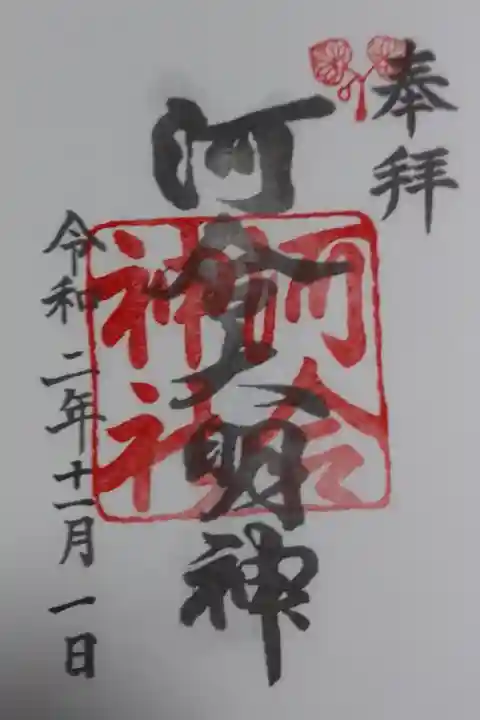 奉拝
河合大明神
河合
神社
令和二年十一月一日